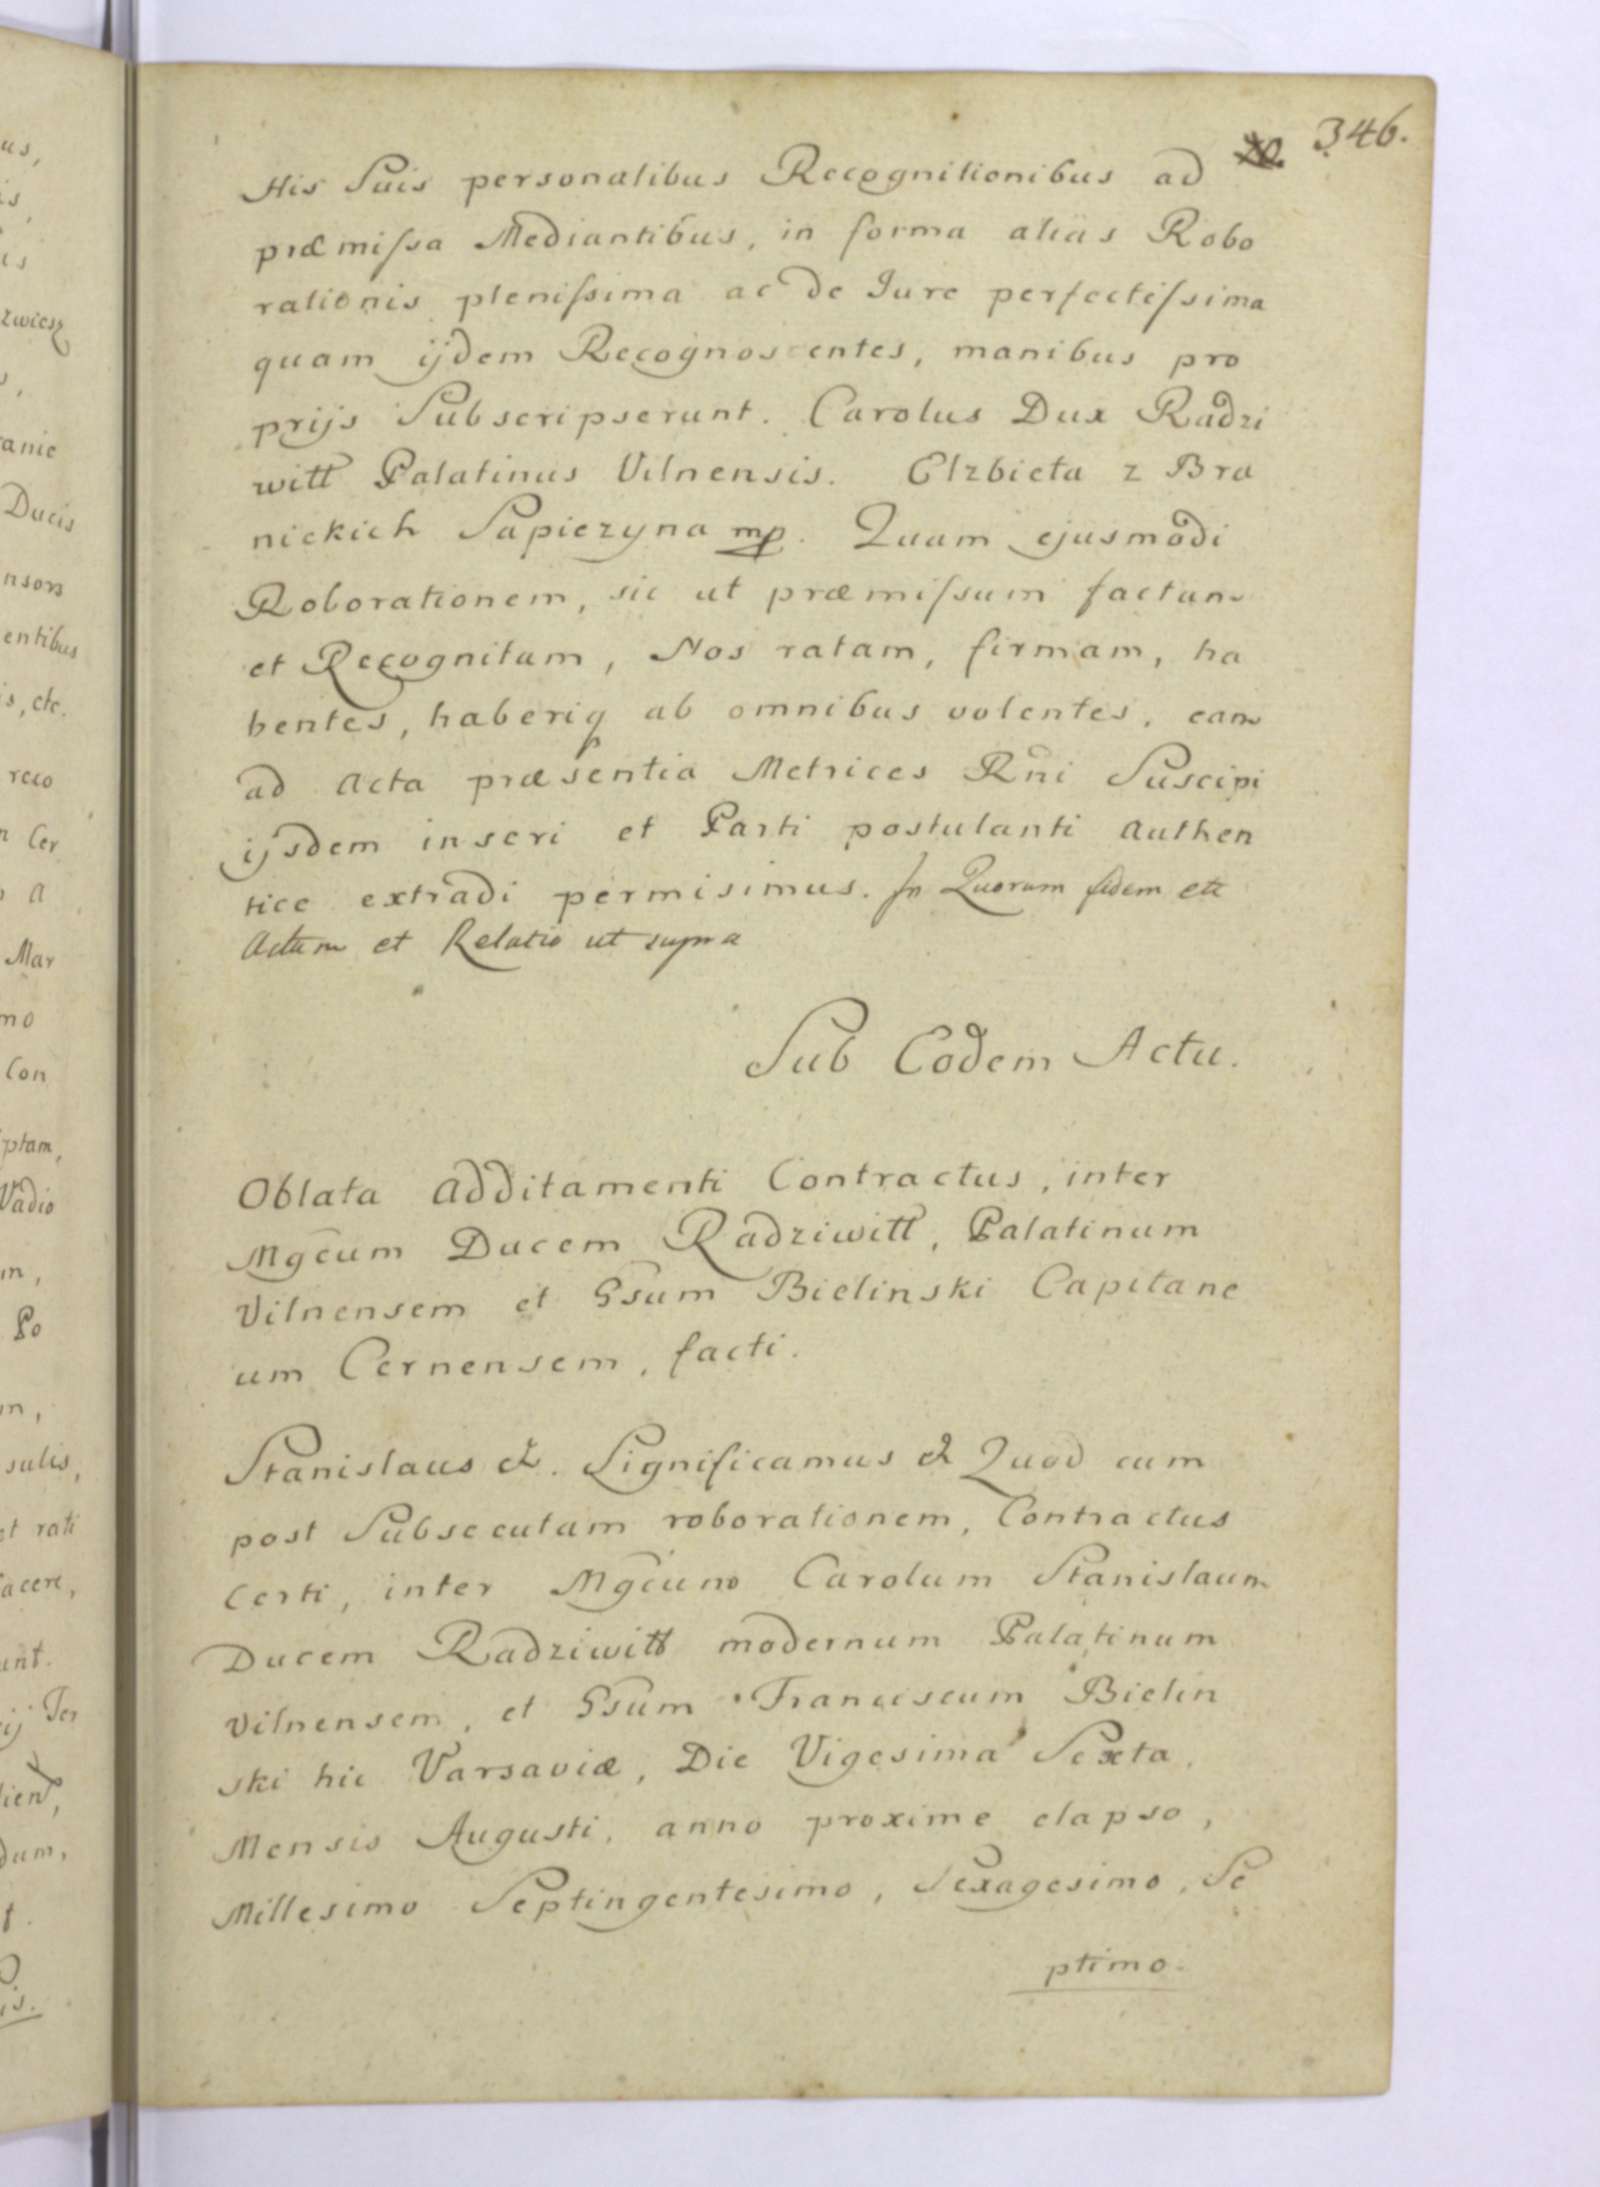 346.
His Suis personalibus Recognitionibus ad
præmiſsa Mediantibus, in forma alias Robo
rationis pleniſsima ac de Jure perfectiſsima
quam ijdem Recognoscentes, manibus pro
prijs Subscripserunt. Carolus Dux Radzi
wiłł Palatinus Vilnensis. Elzbieta z Bra
nickich Sapiezyna mp. Quam ejusmodi
Roborationem, sic ut præmiſsum factam
et Recognitam, Nos ratam, firmam, ha
bentes, haberiq ab omnibus volentes, eam
ad Acta præsentia Metrices Rñi Suscipi
ijsdem inseri et Parti postulanti Authen
tice extradi permisimus. In Quorum fidem etc
Actum et Relatio ut supra
Sub Eodem Actu.
Oblata Additamenti Contractus, inter
Mgcum Ducem Radziwiłł, Palatinum
Vilnensem et Gsum Bielinski Capitane
um Cernensem, facti.
Stanislaus &. Significamus & Quod cum
post Subsecutam roborationem, Contractus
Certi, inter Mgcum Carolum Stanislaum
Ducem Radziwiłł modernum Palatinum
Vilnensem, et Gsum Franciscum Bielin
ski hic Varsaviæ, Die Vigesima Sexta,
Mensis Augusti, anno proxime elapso,
Millesimo Septingentesimo, Sexagesimo, Se
ptimo.